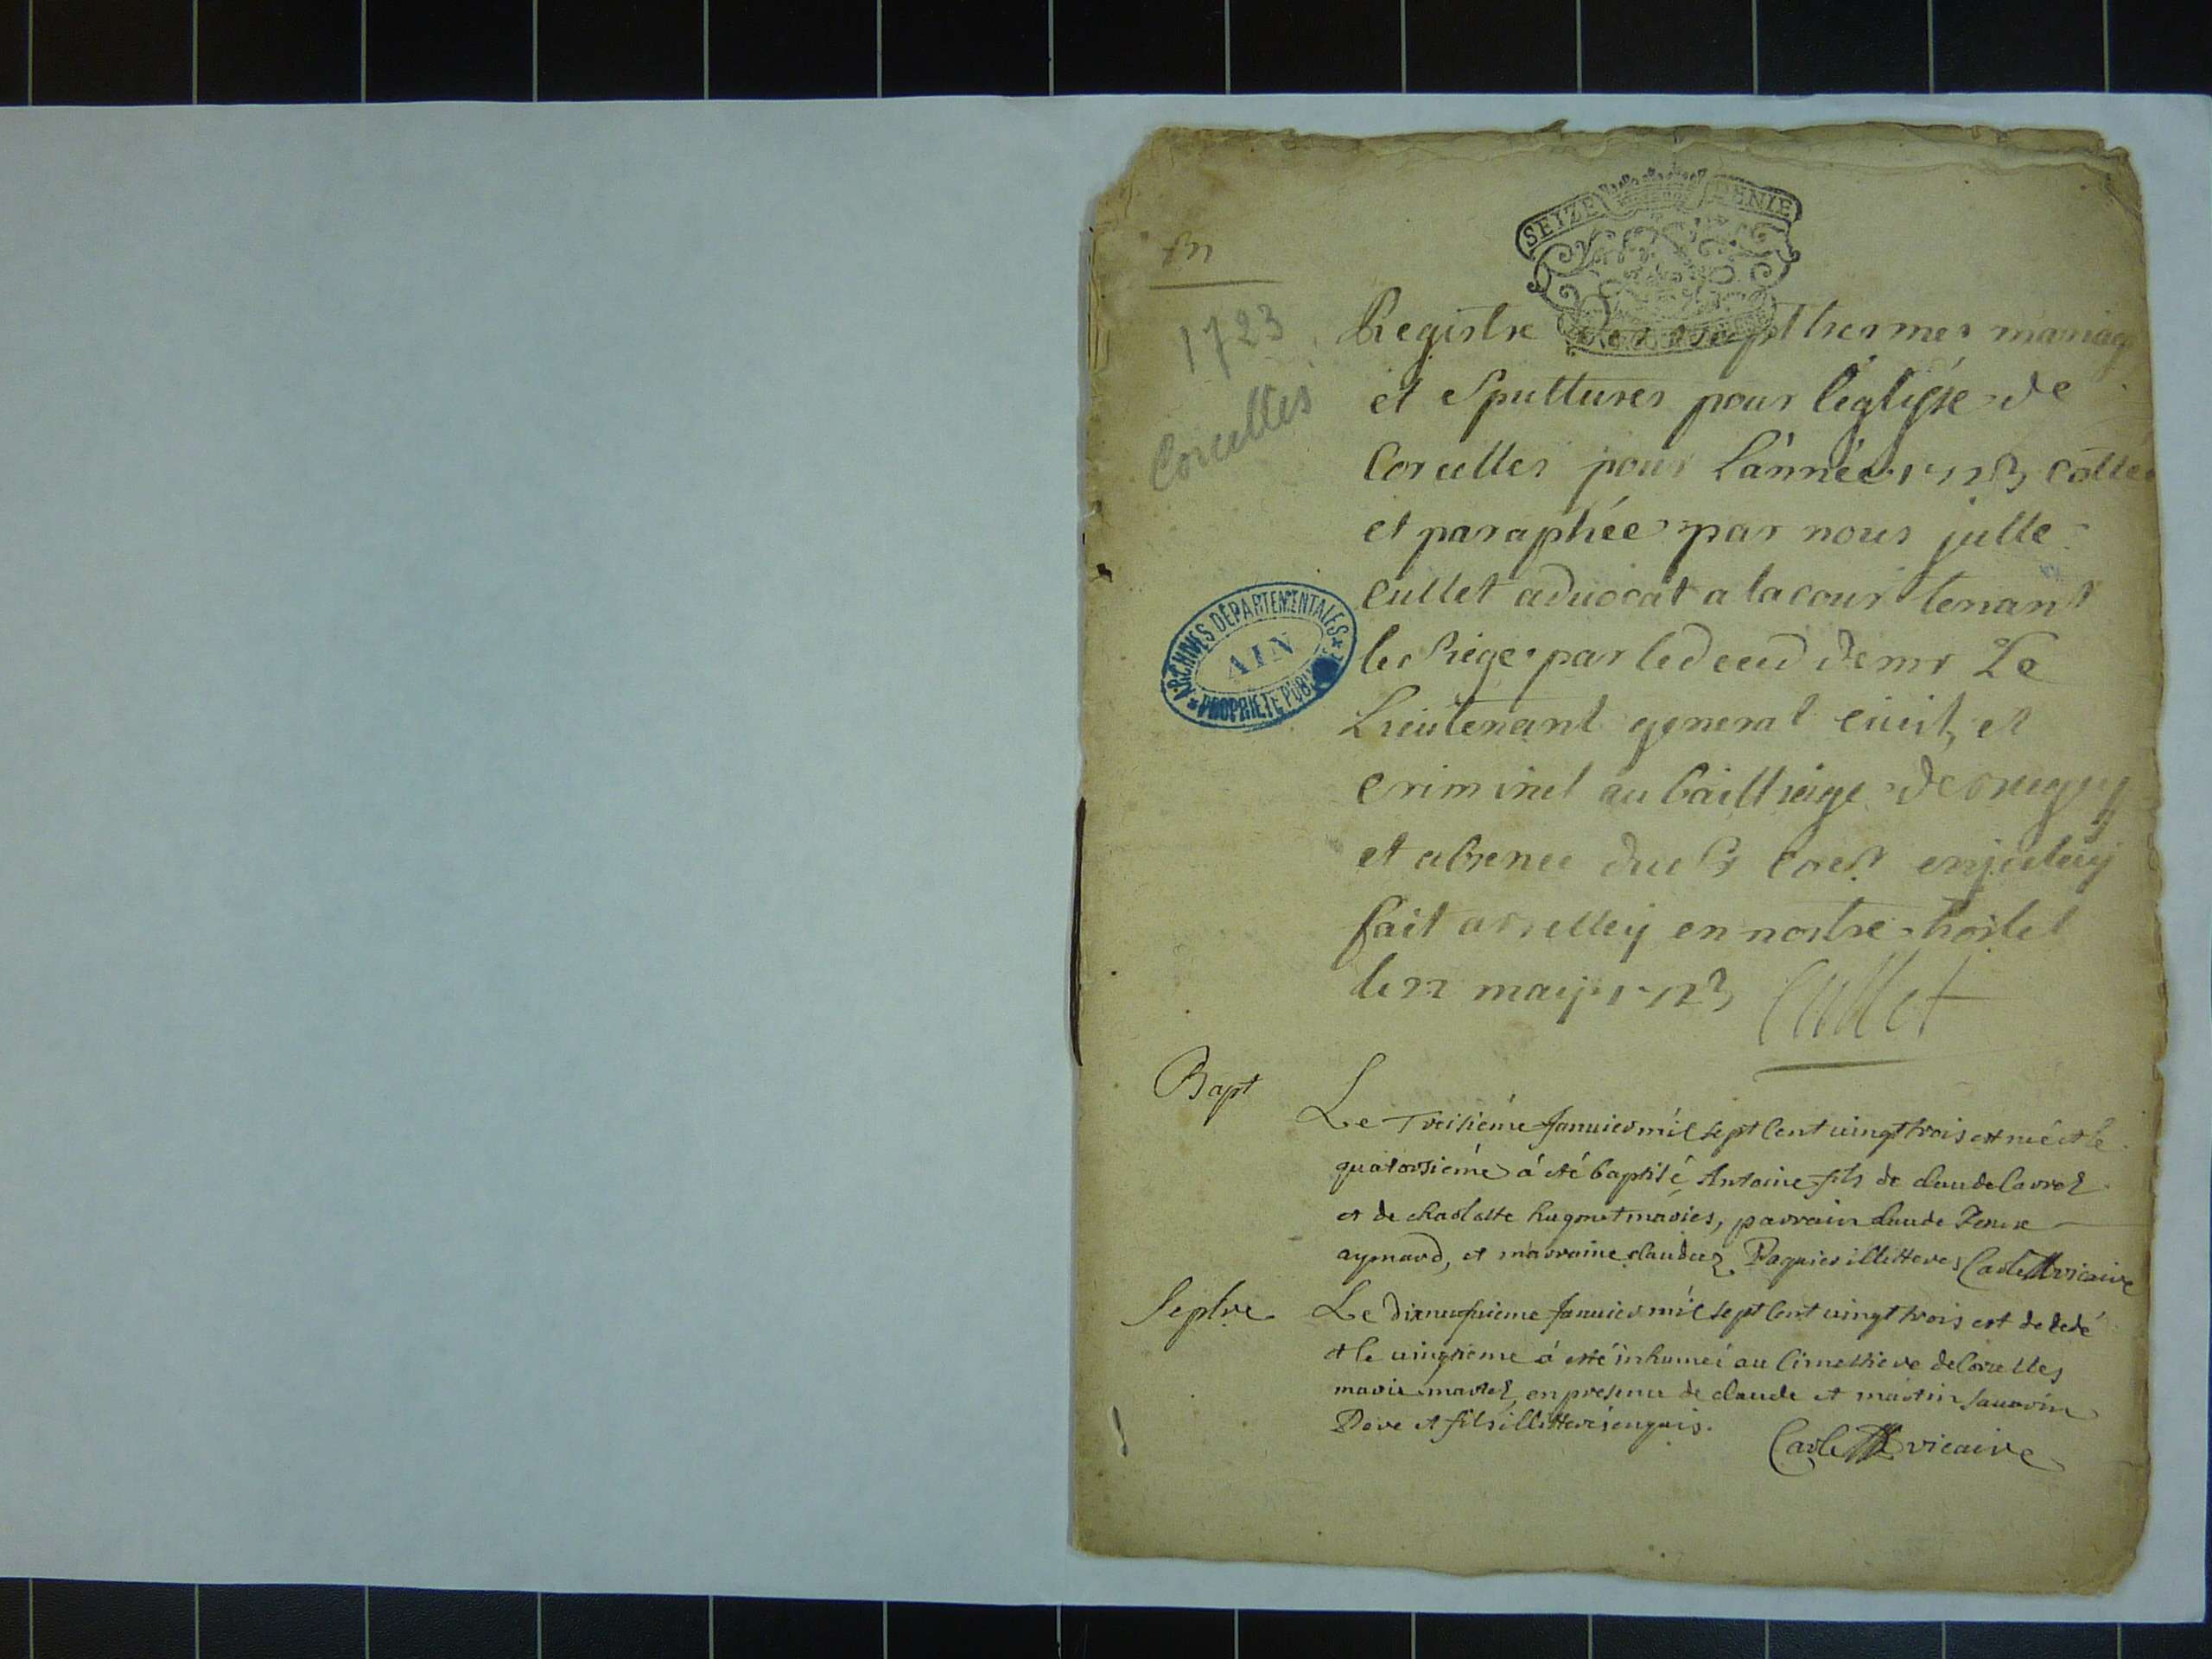 SEIZE DENIE
1723
Corcelles
Registre Des bapthesmes mariag
et Spultures pour léglise de
Corcelles pour l'année 1723 cottée
et paraphée par nous julle
Cullet aduocat a la cour tenant
le siege par le deced de mr Le
Lieutenant general ciuil, et
criminel au bailliage de bugey
et absence du Sr Corest en jceluy
fait a belley en nostre hostel
le 22 may 1723 Cullet
ARCHIVES DÉPARTEMENTALES
AIN
PROPRIÉTÉ PUBLIQUE
Bapt
Le Treisiéme Januier mil sept Cent uingt trois est né et le
quatorsiéme á eté baptisé Antoine fils de claude
et de charlotte hugonet mariés, parrain claude
aymard, et marraine claudine Paquier illitterés Carle vicaire
Sepltre
Le Dixneufuieme Januier mil sept Cent uingt trois est decedé
et le uingtieme á esté inhumeé au Cimettiere de Corcelles
marie martel, en presence de claude et martin
Pere et fils illitterés enquis.
Carle vicaire